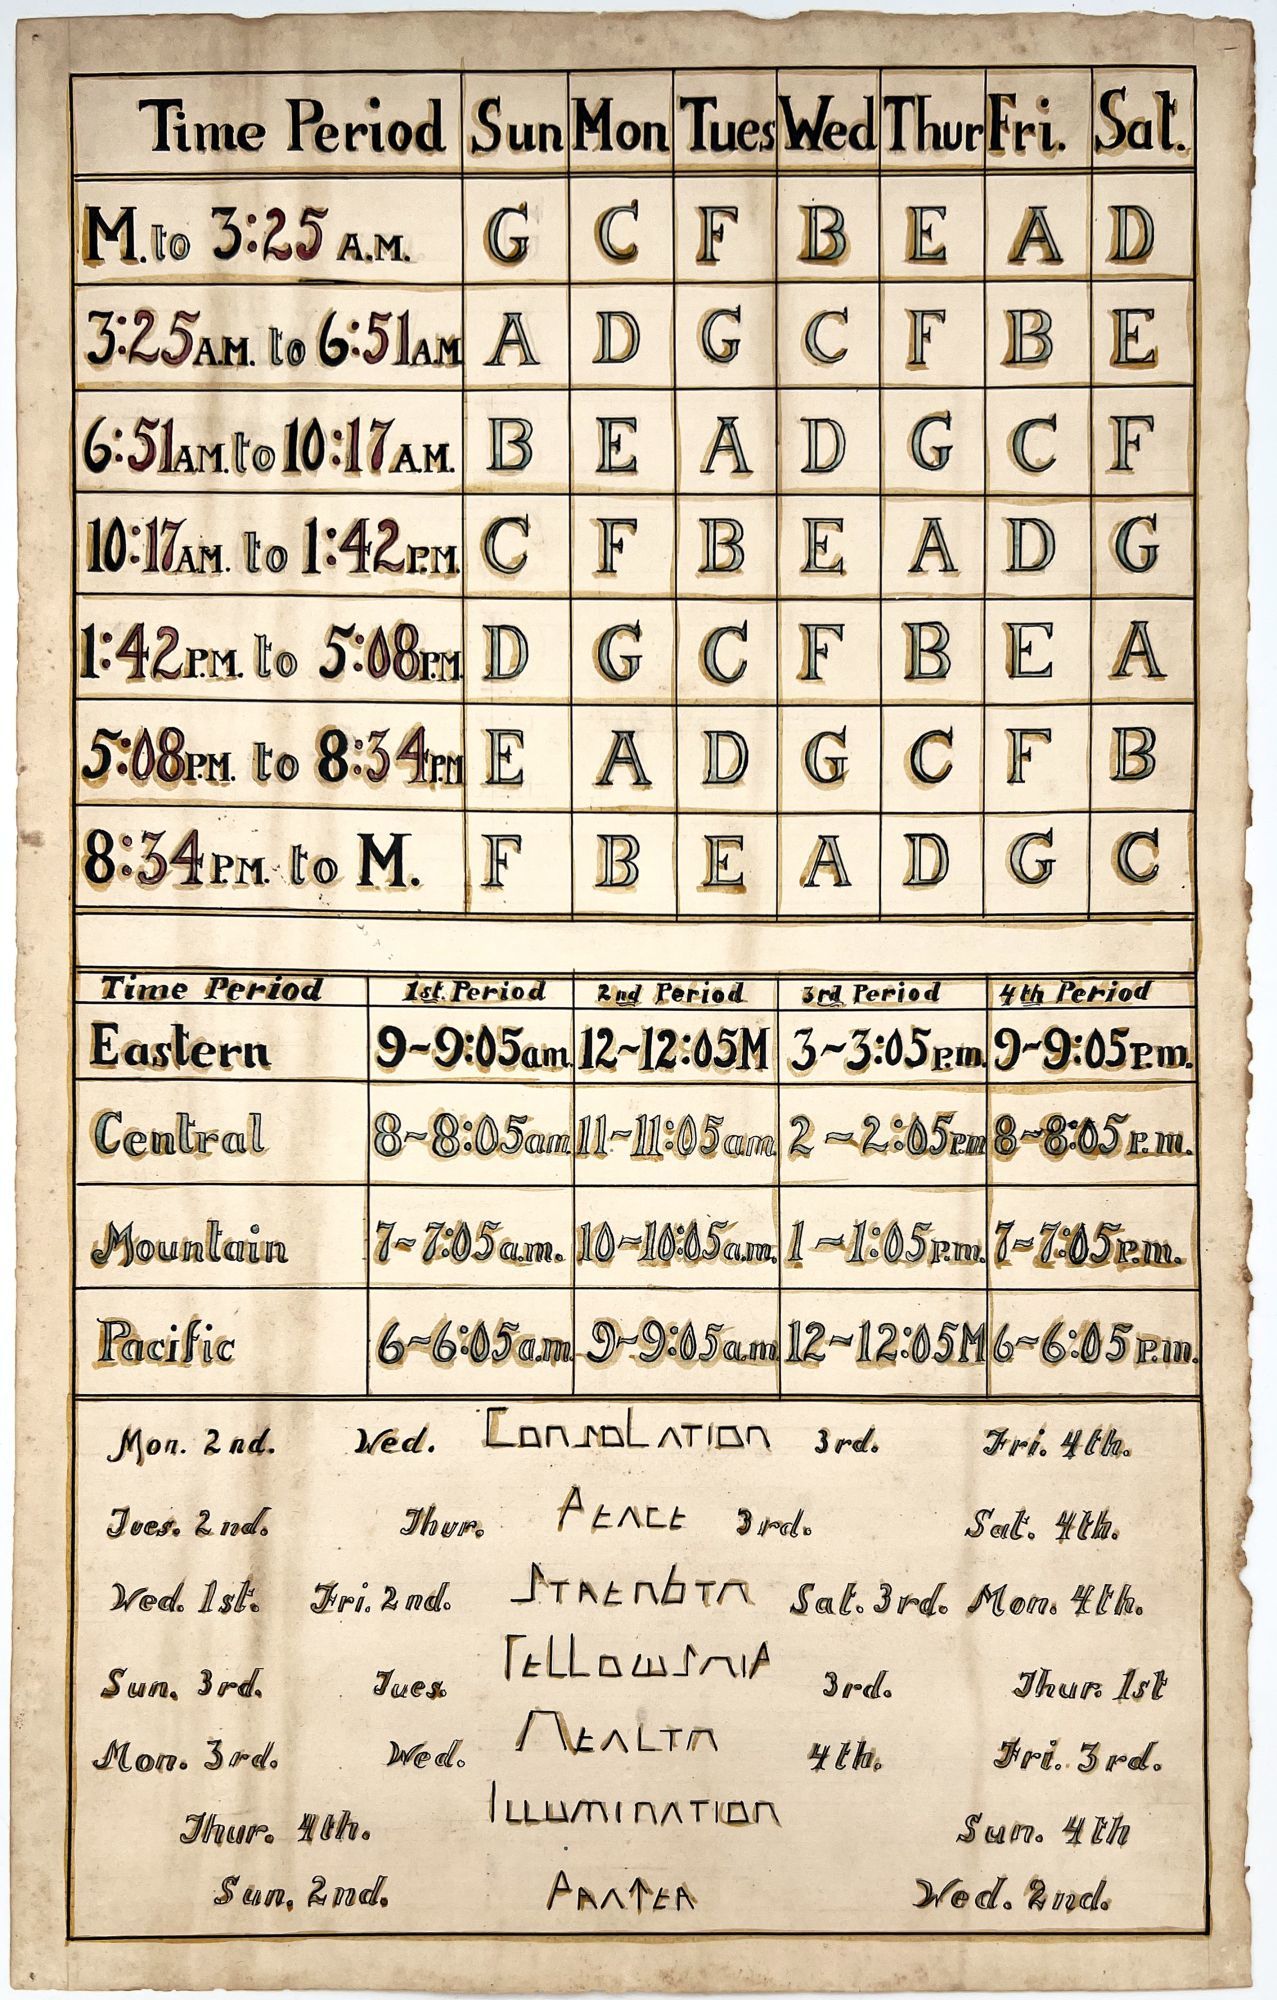 Time Period Sun Mon Tues Wed Thur Fri. Sat.
M. to 3:25 A.M. G C F B E A D
3:25 A.M. to 6:51 A.M A D G C F B E
6:51 AM. to 10:17 A.M. B E A D G C F
10:17 AM. to 1:42 P.M. C F B E A D G
1:42 P.M. to 5:08 P.M. D G C F B E A
5:08 P.M. to 8:34 PM E A D G C F B
8:34 P.M. to M. F B E A D G C
Time Period 1st. Period 2nd Period 3rd Period 4th Period
Eastern 9~9:05 am. 12~12:05 M 3~3:05 P.m. 9~9:05 P.m.
Central 8~8:05 am 11~11:05 am. 2~2:05 P.m 8~8:05 P.m.
Mountain 7~7:05 a.m. 10~10:05 a.m. 1~1:05 P.m. 7~7:05 P.m.
Pacific 6~6:05 a.m. 9~9:05 a.m 12~12:05 M 6~6:05 P.m.
Mon. 2nd. Wed. Consolation 3rd. Fri. 4th.
Tues. 2nd. Thur. Peace 3rd. Sat. 4th.
Wed. 1st. Fri. 2nd. Strength Sat. 3rd. Mon. 4th.
Sun. 3rd. Tues. Fellowship 3rd. Thur. 1st
Mon. 3rd. Wed. Health 4th. Fri. 3rd.
Thur. 4th. Illumination Sun. 4th
Sun. 2nd. Wed. 2nd.